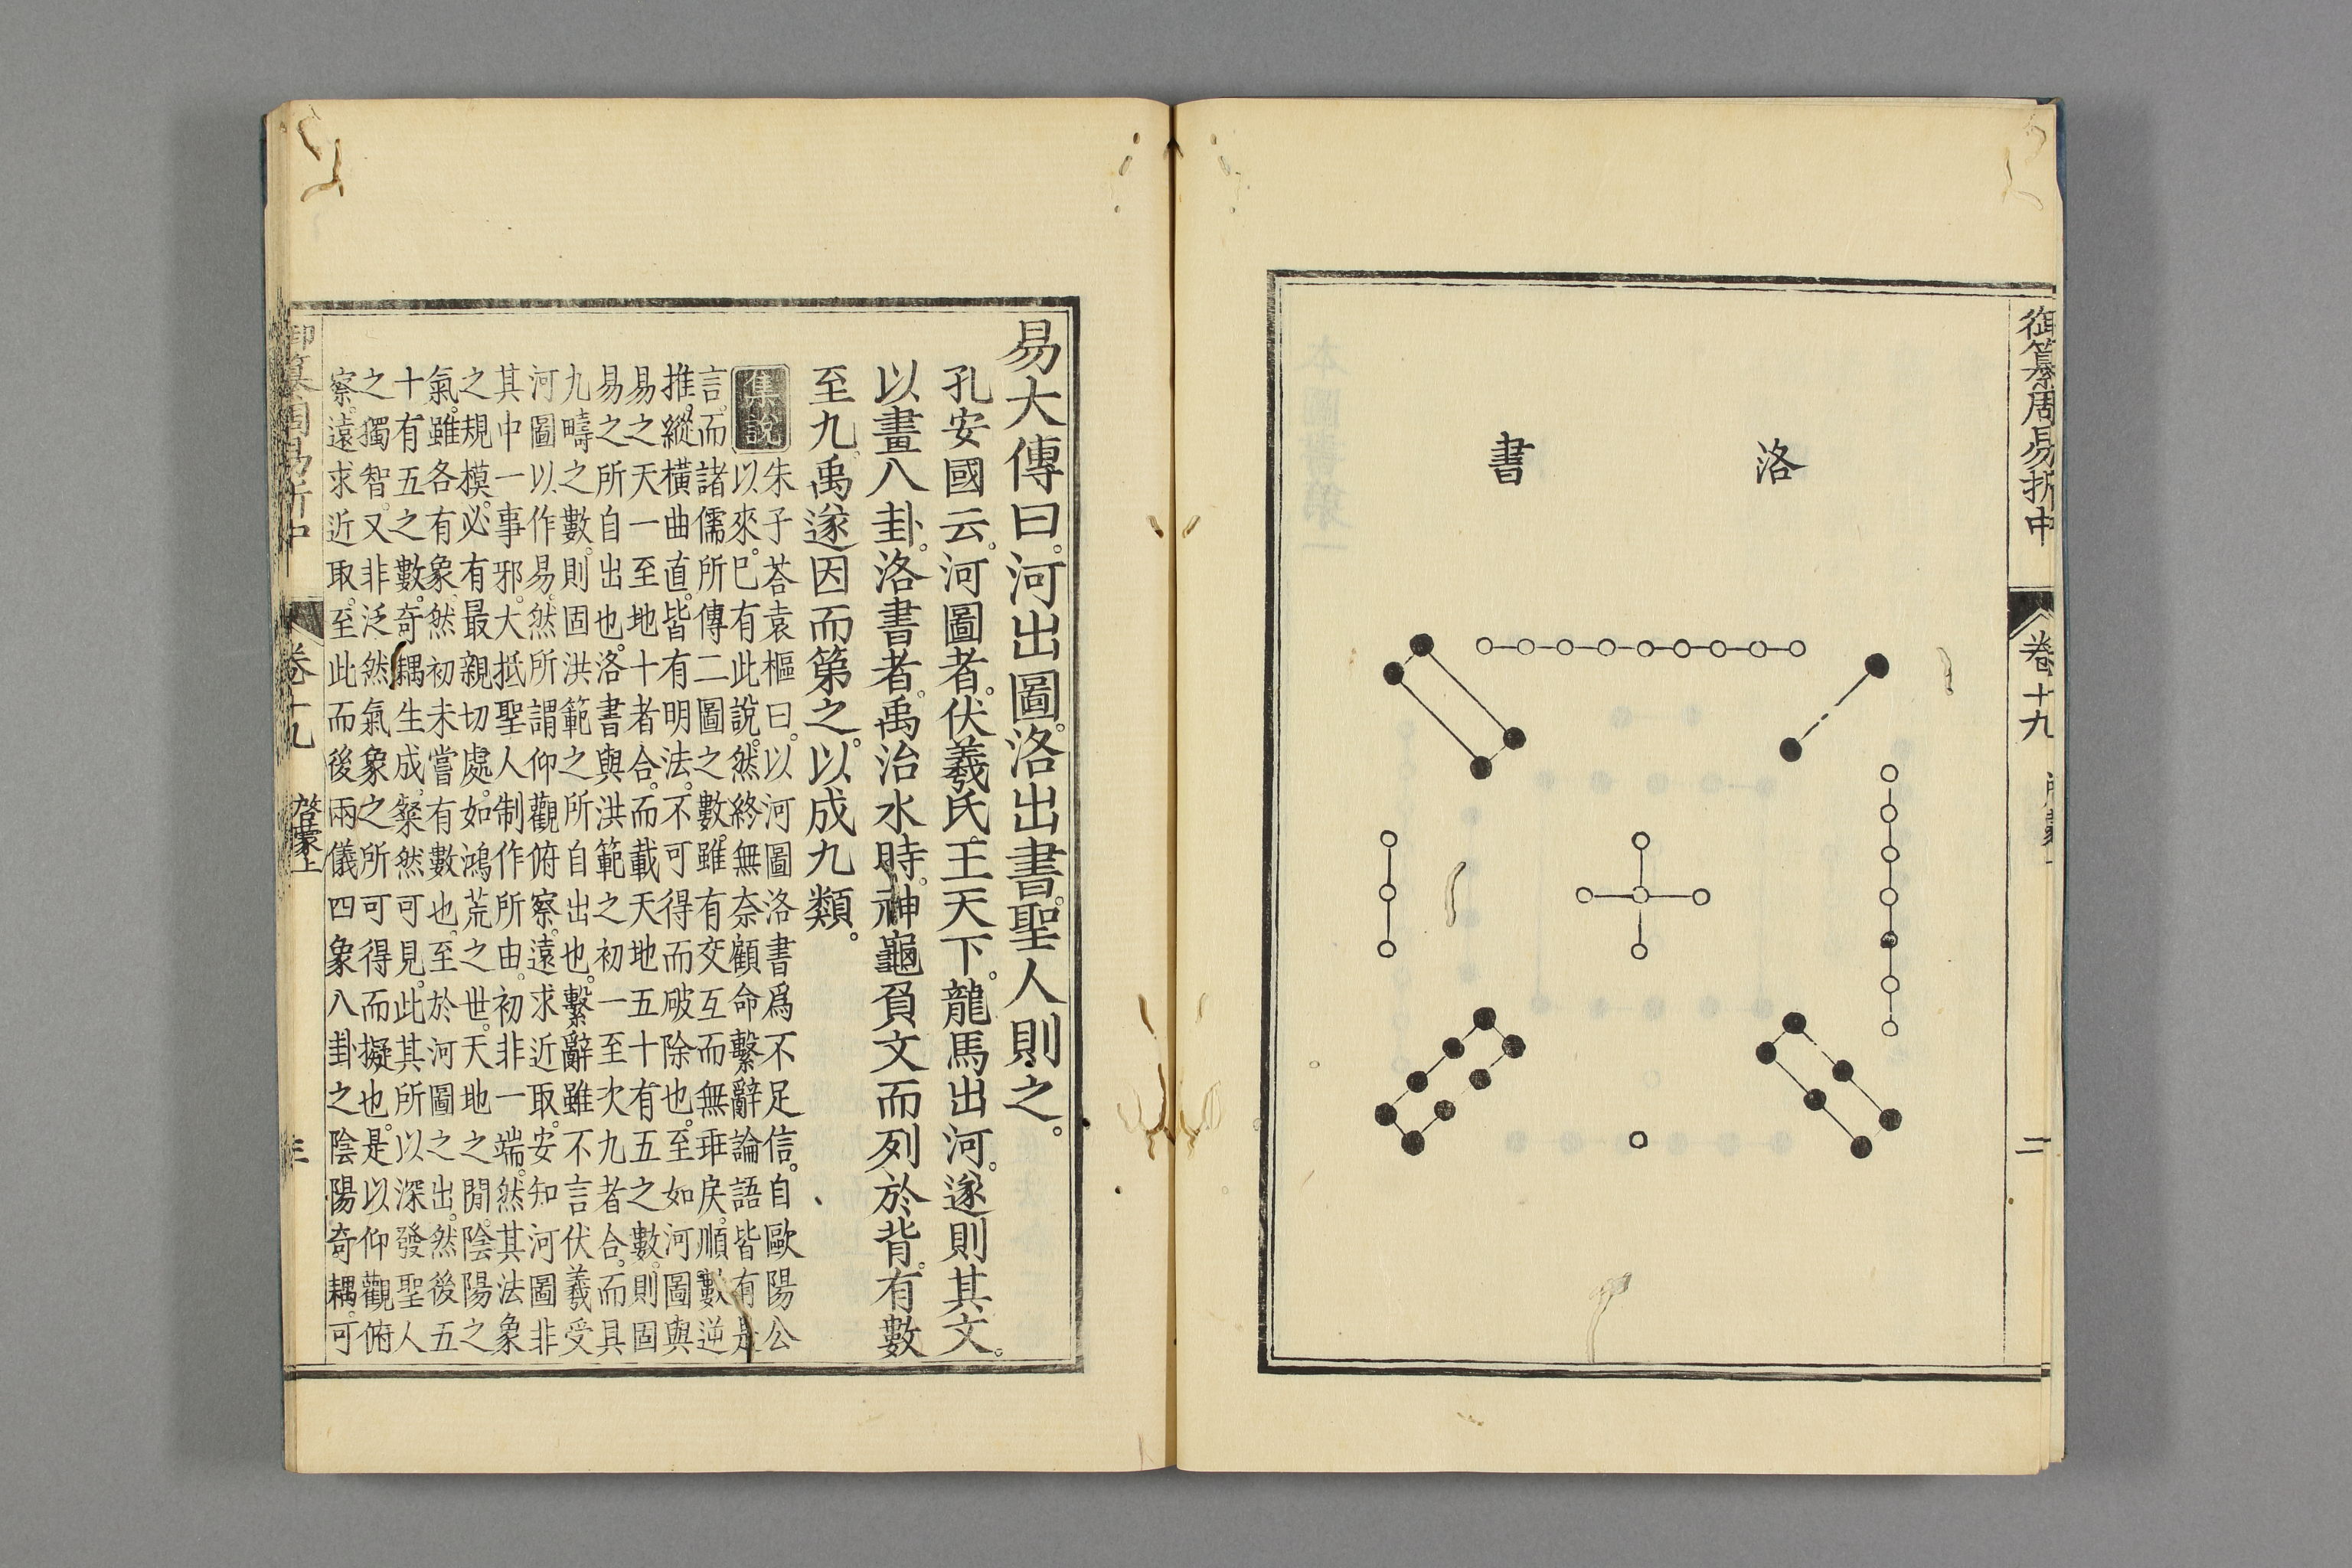 御纂周易折中
卷十九
二
洛書
易大傳曰。河出圖。洛出書。聖人則之。
孔安國云。河圖者。伏羲氏王天下。龍馬出河。遂則其文。
以畫八卦。洛書者。禹治水時。神龜負文而列於背。有數
至九。禹遂因而第之。以成九類。
集說
朱子荅袁樞曰。以河圖洛書爲不足信。自歐陽公
以來。已有此說。然終無奈顧命繫辭論語皆有是
言。而諸儒所傳二圖之數。雖有交互而無乖戾。順數逆
推。縱橫曲直。皆有明法。不可得而破除也。至如河圖與
易之天一至地十者合。而載天地五十有五之數。則固
易之所自出也。洛書與洪範之初一至次九者合。而具
九疇之數。則固洪範之所自出也。繫辭雖不言伏羲受
河圖以作易。然所謂仰觀俯察。遠求近取。安知河圖非
其中一事邪。大抵聖人制作所由。初非一端。然其法象
之規模。必有最親切處。如鴻荒之世。天地之閒。陰陽之
氣。雖各有象。然初未嘗有數也。至於河圖之出。然後五
十有五之數。奇耦生成。粲然可見。此其所以深發聖人
之獨智。又非泛然氣象之所可得而擬也。是以仰觀俯
察。遠求近取。至此而後兩儀四象八卦之陰陽奇耦。可
御纂周易折中
卷十九
啓蒙上
三